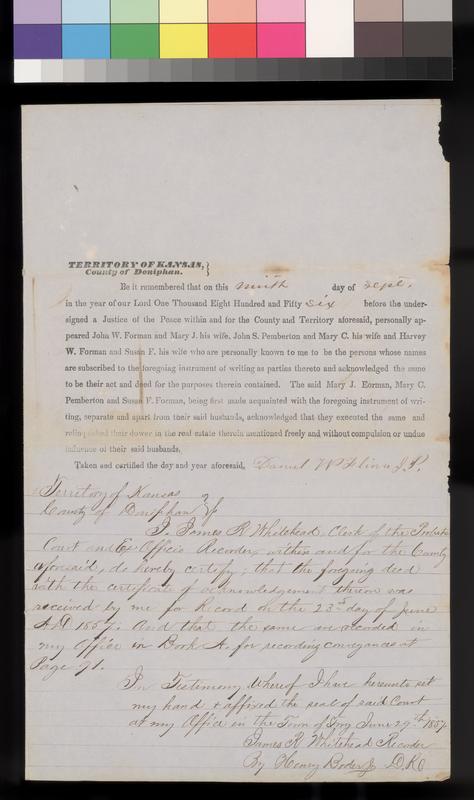 TERRITORY OF KANSAS, }
County of Doniphan.
Be it remembered that on this ninth day of Sept.
in the year of our Lord One Thousand Eight Hundred and Fifty six before the under-
signed a Justice of the Peace within and for the County and Territory aforesaid, personally ap-
peared John W. Forman and Mary J. his wife, John S. Pemberton and Mary C. his wife and Harvey
W. Forman and Susan F. his wife who are personally known to me to be the persons whose names
are subscribed to the foregoing instrument of writing as parties thereto and acknowledged the same
to be their act and deed for the purposes therein contained. The said Mary J. Forman, Mary C.
Pemberton and Susan F. Forman, being first made acquainted with the foregoing instrument of wri-
ting, separate and apart from their said husbands, acknowledged that they executed the same and
relinquished their dower in the real estate therein mentioned freely and without compulsion or undue
influence of their said husbands.
Taken and certified the day and year aforesaid, Daniel W J.P.
Territory of Kansas
County of Doniphan
I, James R Whitehead, Clerk of the Probate
Court and Ex Officio Recorder, within and for the County
aforesaid, do hereby certify, that the foregoing deed
with the certificate of acknowledgement thereon was
received by me for Record on the 23rd day of June
A.D. 1857. And that the same is recorded in
my Office in Book A. for recording conveyances at
Page 71.
In Testimony Whereof I have hereunto set
my hand & affixed the seal of said Court
at my Office in the Town of Troy June 29th 1857
James R Whitehead Recorder
By Henry Boder Jr D.R.